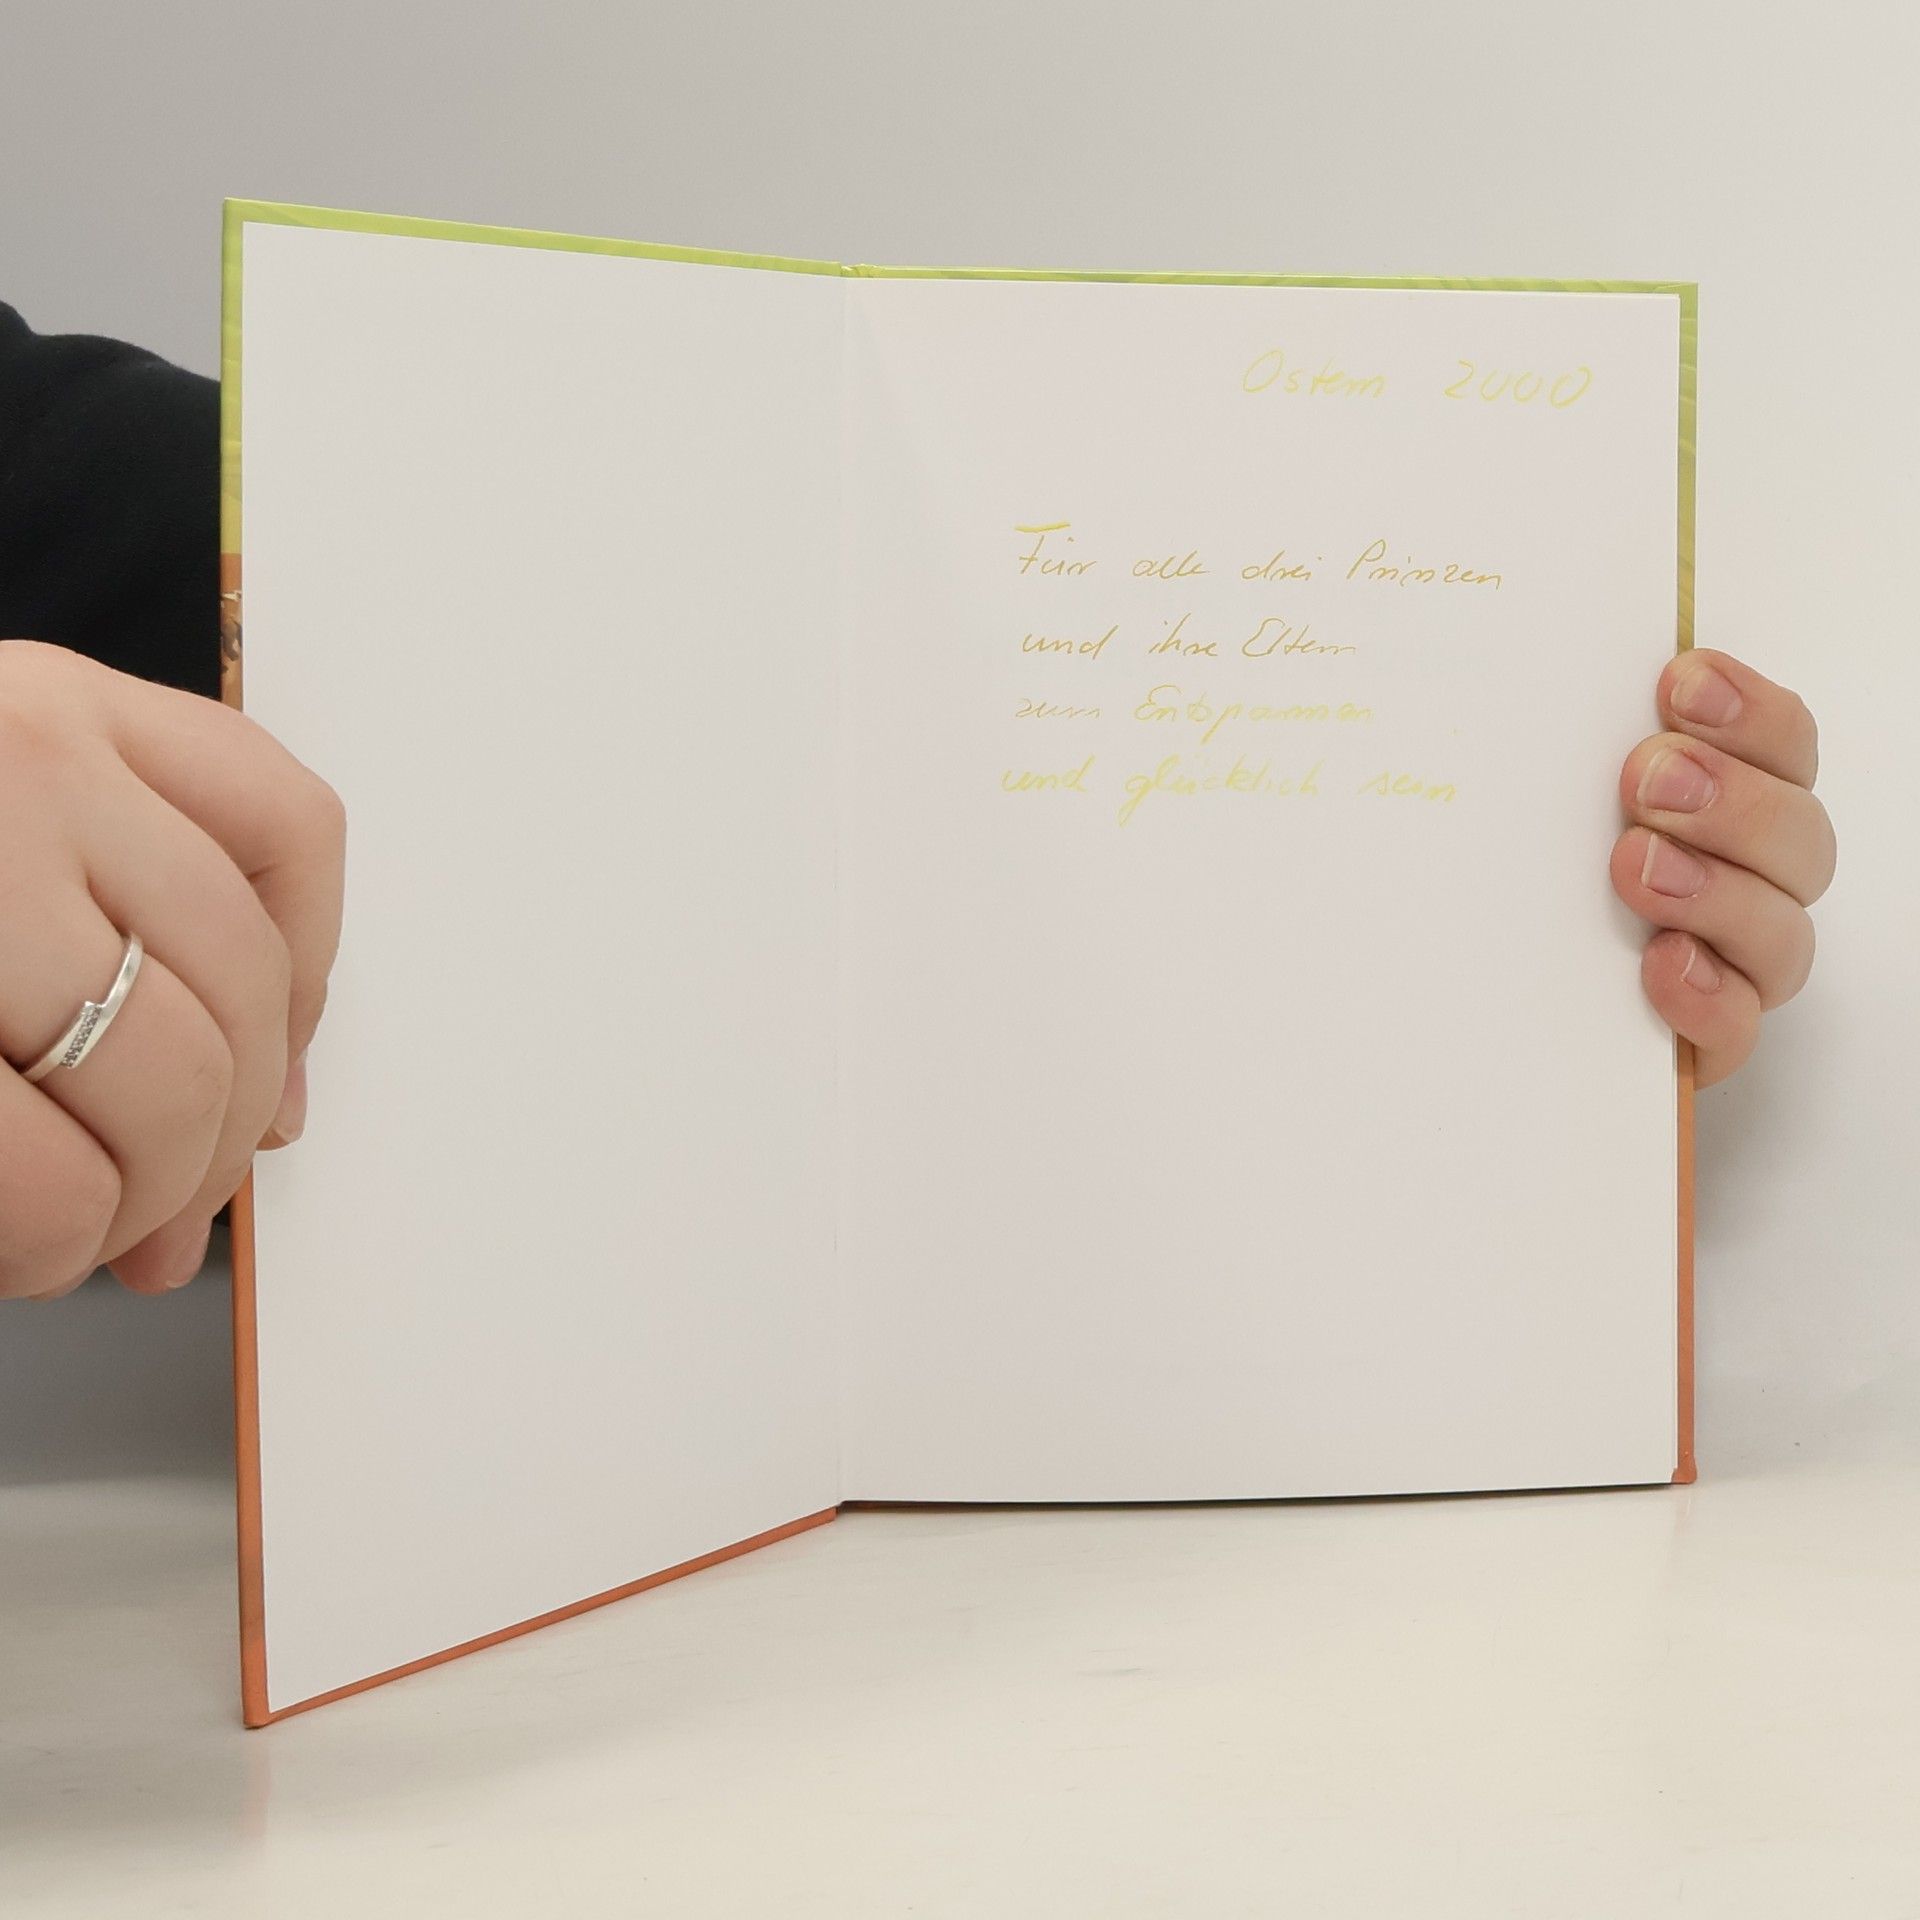 Ostern 2000
Für alle drei Prinzen
und ihre Eltern
zum Entspannen
und glücklich sein